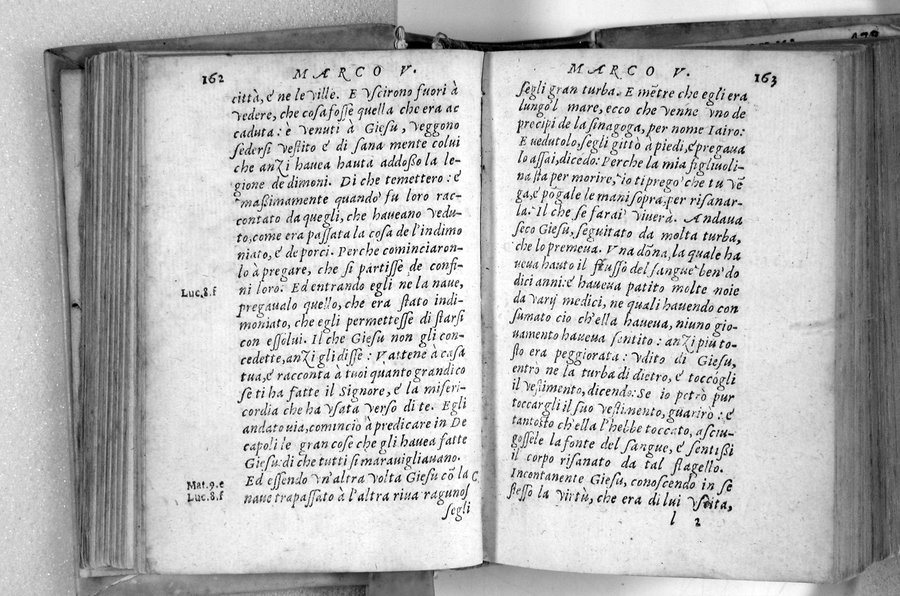 162
MARCO V.
città, e ne le ville. E vscirono fuori à
vedere, che cosa fosse quella che era ac
caduta: e venuti à Giesu, veggono
sedersi vestito e di sana mente colui
che anzi hauea hauta addosso la le-
gione de dimoni. Di che temettero: e
massimamente quando fu loro rac-
contato da quegli, che haueano vedu-
to, come era passata la cosa de l'indimo
niato, e de porci. Perche cominciaron-
lo à pregare, che si partisse de confi-
Luc.8.f
ni loro. Ed entrando egli ne la naue,
pregaualo quello, che era stato indi-
moniato, che egli permettesse di starsi
con essolui. Il che Giesu non gli con-
cedette, anzi gli disse: Vattene à casa
tua, e racconta à tuoi quanto grandi co
se ti ha fatte il Signore, e la miseri-
cordia che ha vsata verso di te. Egli
andato uia, cominciò à predicare in De
capoli le gran cose che gli hauea fatte
Giesu: di che tutti si marauigliauano.
Mat.9.e
Luc.8.f
Ed essendo vn'altra volta Giesu cõ la C
naue trapassato à l'altra riua ragunos
segli
MARCO V.
163
segli gran turba. E mẽtre che egli era
lungo'l mare, ecco che venne vno de
precipi de la sinagoga, per nome Iairo:
E vedutolo, segli gittò à piedi, e pregaua
lo assai, dicẽdo: Perche la mia figliuoli-
na sta per morire, io ti prego che tu vẽ
ga, e põgale le mani sopra, per risanar-
la. Il che se farai viuerà. Andaua
seco Giesu, seguitato da molta turba,
che lo premeua. Vna dõna, la quale ha
ueua hauto il flusso del sangue ben do
dici anni: e haueua patito molte noie
da varij medici, ne quali hauendo con
sumato cio ch'ella haueua, niuno gio-
uamento haueua sentito: anzi più to-
sto era peggiorata: vdito di Giesu,
entrò ne la turba di dietro, e toccògli
il vestimento, dicendo: Se io potrò pur
toccargli il suo vestimento, guarirò: e
tantosto ch'ella l'hebbe toccato, asciu-
gossele la fonte del sangue, e sentissi
il corpo risanato da tal flagello.
Incontanente Giesu, conoscendo in se
stesso la virtù, che era di lui vscita,
l 2